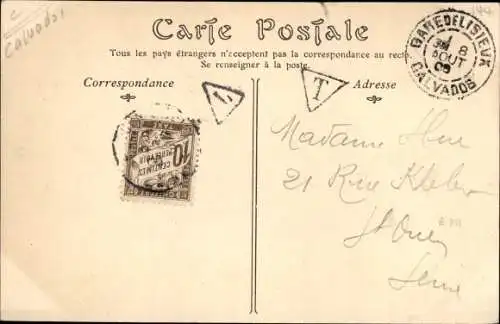 Calvados
Carte Postale
Tous les pays étrangers n'acceptent pas la correspondance au recto.
Se renseigner à la poste.
Correspondance
Adresse
T
T
GARE DE LISIEUX
8
AOUT
CALVADOS
10
CENTIMES
A PERCEVOIR
TAXE
Madame Hue
21 Rue Kleber
St Ouen
Seine